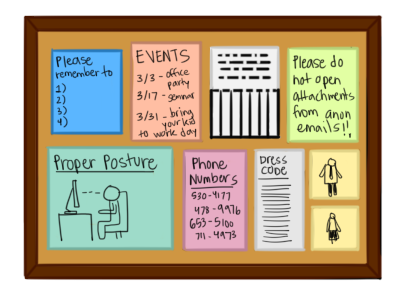 Please
remember to
1)
2)
3)
4)
EVENTS
3/3 - office
party
3/17 - seminar
3/31 - bring
your kid
to work day
Please do
not open
attachments
from anon
emails!!
Proper Posture
Phone
Numbers
530-4177
478-9976
653-5100
711-4973
DRESS
CODE